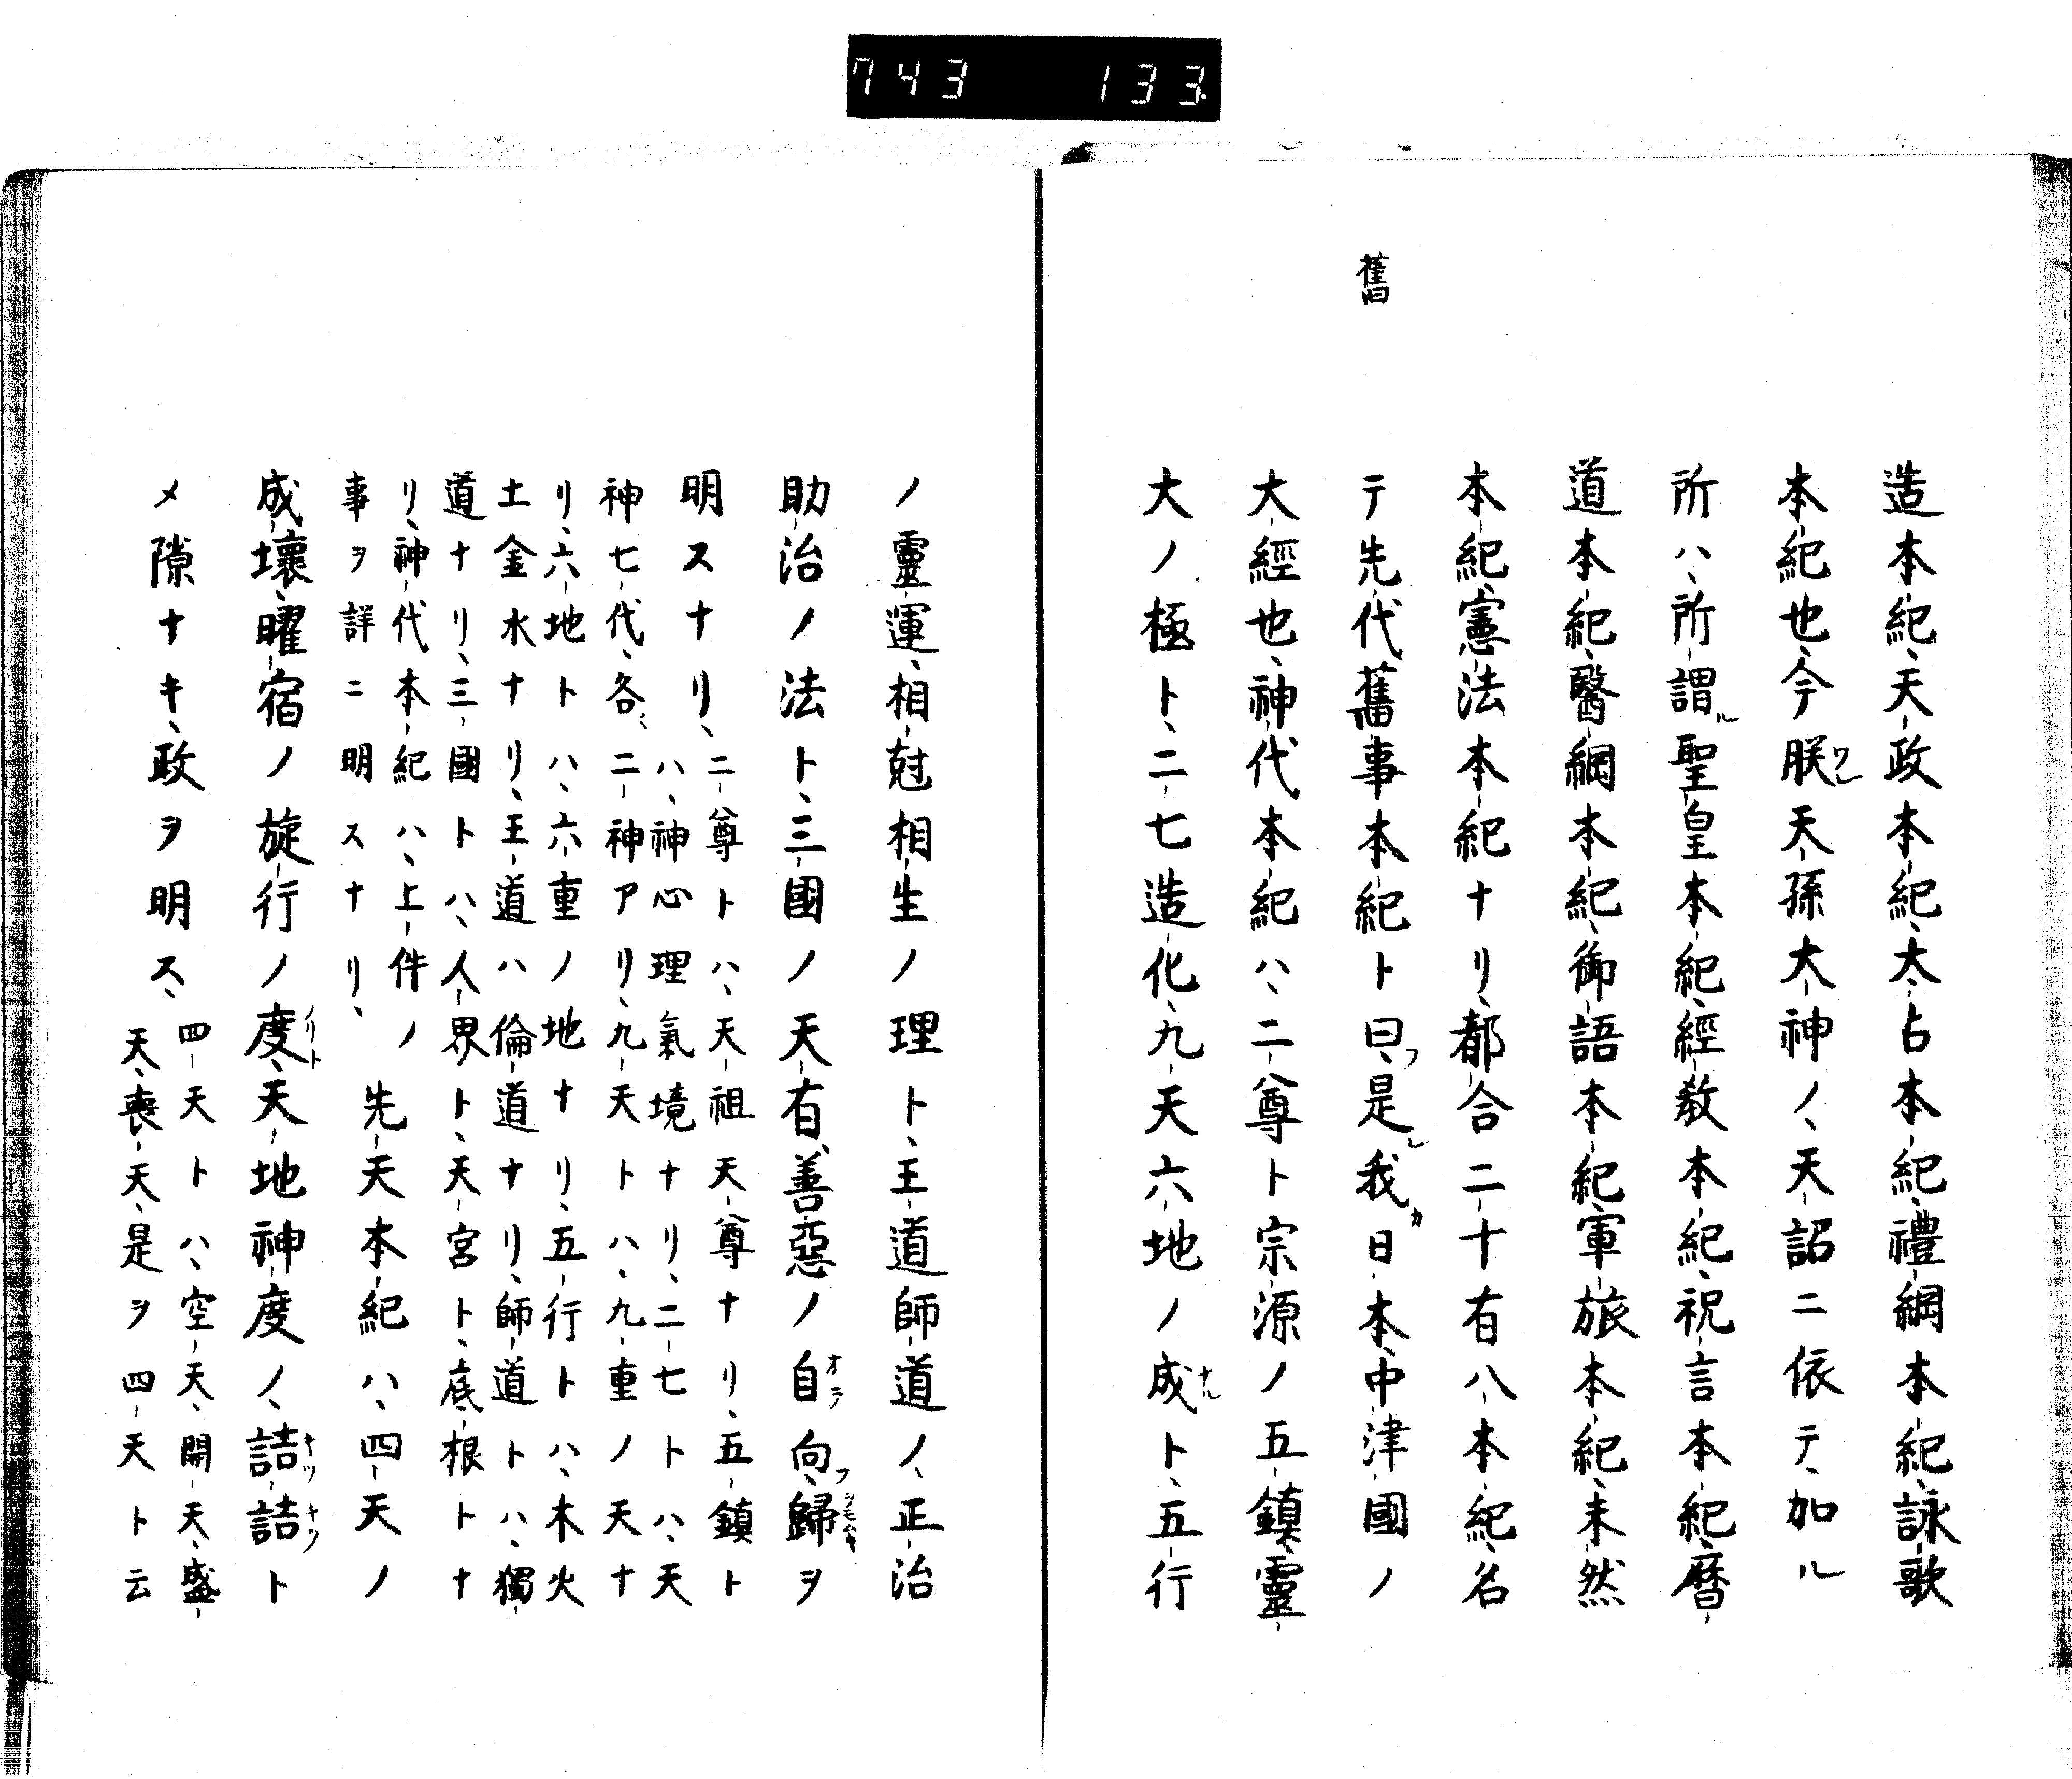 743 133.
造本紀、天政本紀、大占本紀、禮綱本紀、詠歌
本紀也、今朕ワレ天孫大神ノ、天詔ニ依テ、加ル
所ハ、所謂ル聖皇本紀、經教本紀、祝言本紀、暦
道本紀、醫綱本紀、御語本紀、軍旅本紀、未然
本紀、憲法本紀ナリ、都合二十有八本紀、名
舊
テ先代舊事本紀ト曰フ、是レ我カ日本、中津國ノ
大經也、神代本紀ハ、二尊ト宗源ノ五鎮、靈
大ノ極ト、二七造化、九天六地ノ成ナルト、五行
ノ靈運、相尅相生ノ理ト、王道師道ノ、正治
助治ノ法ト、三國ノ天有、善惡ノ自オラ向フ、歸ヲ
明スナリ、二尊トハ、天祖天尊ナリ、五鎮ト
ハ、神心理氣境ナリ、二七トハ、天
神七代、各〻二神アリ、九天トハ、九重ノ天ナ
リ、六地トハ、六重ノ地ナリ、五行トハ、木火
土金水ナリ、王道ハ倫道ナリ、師道トハ、獨
道ナリ、三國トハ、人界ト、天宮ト、底根トナ
リ、神代本紀ハ、上件ノ
事ヲ詳ニ明スナリ、
先天本紀ハ、四天ノ
成壞、曜宿ノ旋行ノ度ノリト、天地神度ノ、詰キツ詰キツト
メ隙ナキ、政ヲ明ス、四天トハ、空天、開天、盛
天、喪天、是ヲ四天ト云